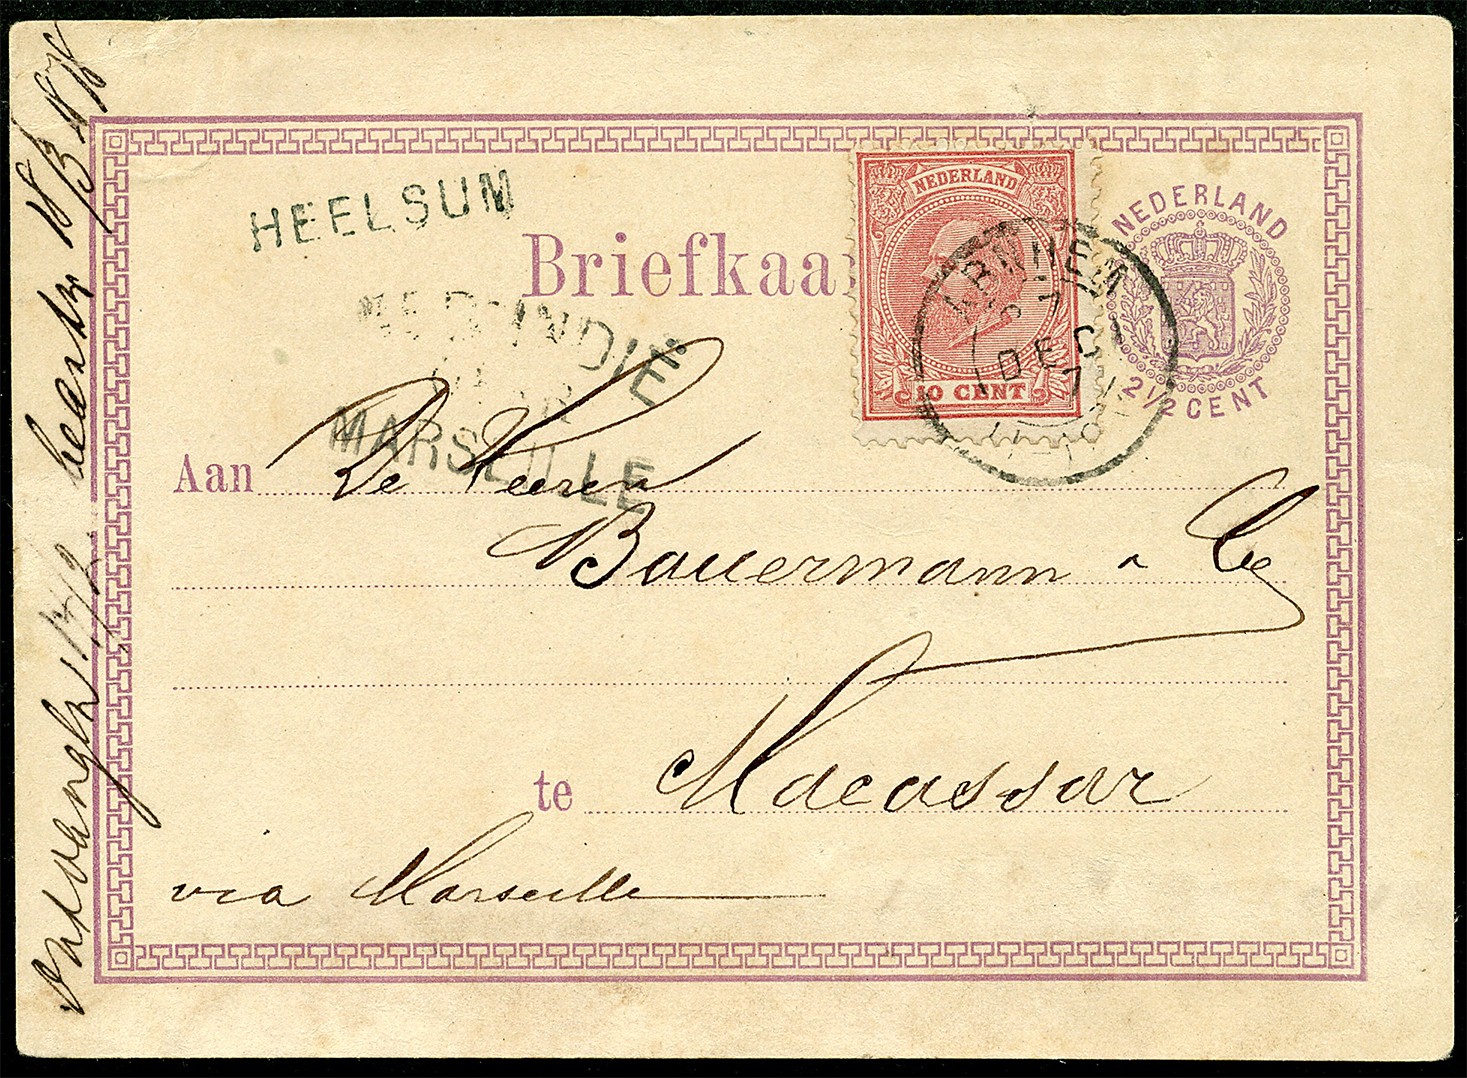 HEELSUM
Briefkaa
NEDERLAND
10 CENT
NEDERLAND
2 1/2 CENT
ARNHEM
DEC
NED: INDIË
MARSEILLE
Aan De Heeren
Bauermann & Co
te Macassar
via Marseille
Ontvangen beantw 18/3